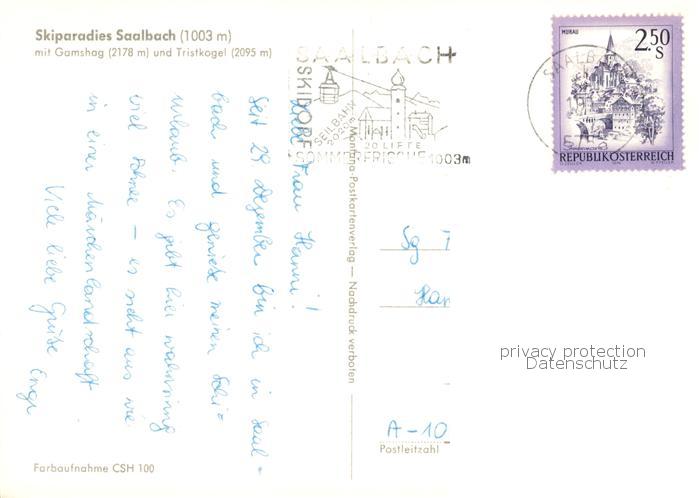 Skiparadies Saalbach (1003 m)
mit Gamshag (2178 m) und Tristkogel (2095 m)
SAALBACH
SKIDORF
SEILBAHN
2020m
20 LIFTE
SOMMERFRISCHE 1003m
SAALBACH
MURAU
2.50
S
REPUBLIK ÖSTERREICH
Liebe Frau Hanni!
Seit 29 Dezember bin ich in Saal=
bach und genieße meinen Schi=
urlaub. Es gibt hier wahnsinnig
viel Schnee – es sieht aus wie
in einer Märchenlandschaft
Viele liebe Grüße
Montana-Postkartenverlag — Nachdruck verboten
Sg
Han
A-10
Postleitzahl
privacy protection
Datenschutz
Farbaufnahme CSH 100